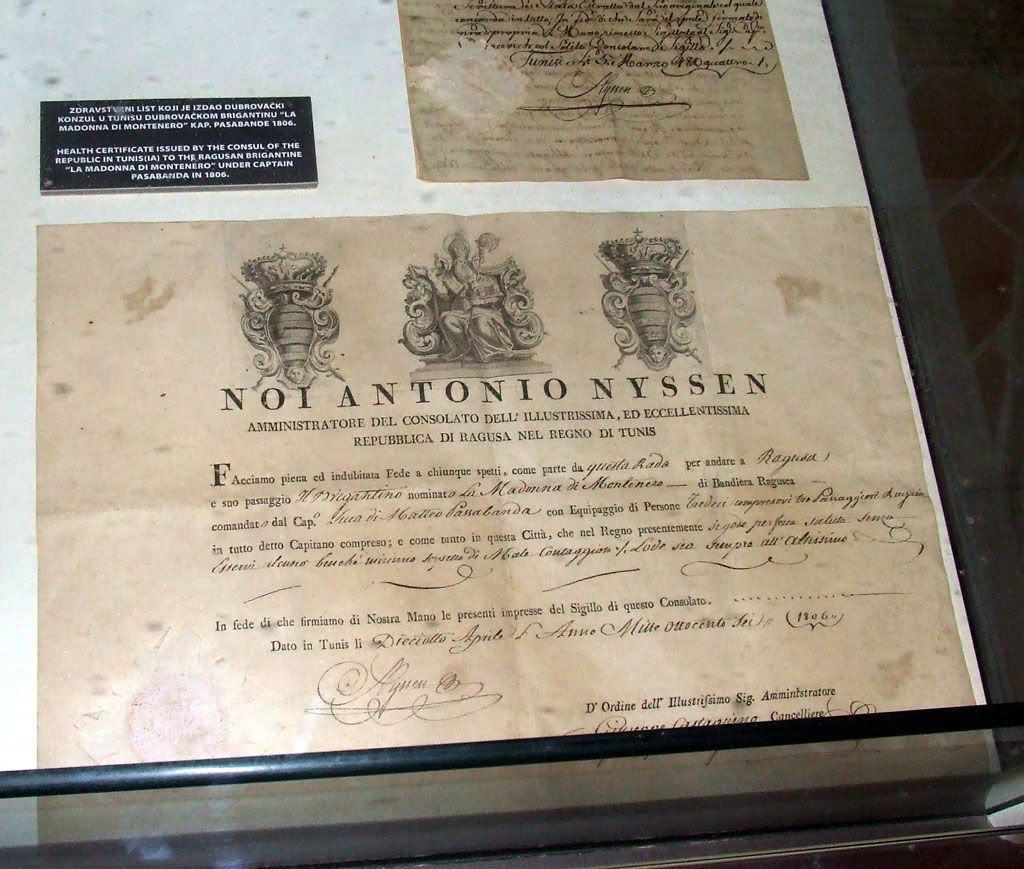 concorda in tutto. In fede di che sarà
Tunisi li 5: Marzo 180quattro
Nyssen
ZDRAVSTVENI LIST KOJI JE IZDAO DUBROVAČKI
KONZUL U TUNISU DUBROVAČKOM BRIGANTINU "LA
MADONNA DI MONTENERO" KAP. PASABANDE 1806.
HEALTH CERTIFICATE ISSUED BY THE CONSUL OF THE
REPUBLIC IN TUNIS(IA) TO THE RAGUSAN BRIGANTINE
"LA MADONNA DI MONTENERO" UNDER CAPTAIN
PASABANDA IN 1806.
NOI ANTONIO NYSSEN
AMMINISTRATORE DEL CONSOLATO DELL' ILLUSTRISSIMA, ED ECCELLENTISSIMA
REPUBBLICA DI RAGUSA NEL REGNO DI TUNIS
FAcciamo piena ed indubitata Fede a chiunque spetti, come parte da questa Rada per andare a Ragusa
e suo passaggio Il Brigantino nominato La Madonna di Montenero di Bandiera Ragusea
comandato dal Cap.º Luca di Matteo Passabanda con Equipaggio di Persone Tredeci compresovi tre Passaggieri Ragusei
in tutto detto Capitano compreso; e come tanto in questa Città, che nel Regno presentemente si gode perfetta salute senza
Esservi alcuno benchè minimo sospetto di Male Contaggioso /. Lode sia sempre all' Altissimo
In fede di che firmiamo di Nostra Mano le presenti impresse del Sigillo di questo Consolato.
Dato in Tunis li Dieciotto Aprile L' Anno Mille Ottocento Sei (1806)
Nyssen
D' Ordine dell' Illustrissimo Sig. Amministratore
Cancelliere